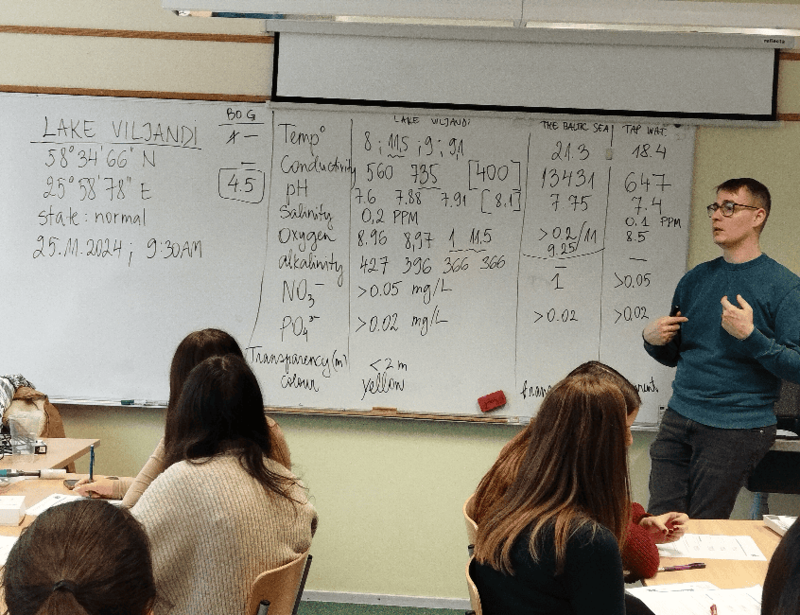 LAKE VILJANDI
58°34'66" N
25°58'78" E
state: normal
25.11.2024; 9:30AM
BOG
4.5
LAKE VILJANDI THE BALTIC SEA TAP WAT.
Temp° 8; 11,5; 9; 9,1 21.3 18.4
Conductivity 560 735 [400] 13431 647
pH 7.6 7.88 7.91 [8.1] 7 75 7.4
Salinity 0,2 PPM 0.1 PPM
Oxygen 8.96 8,97 1 11.5 >0.2/11 8.5
9.25
alkalinity 427 396 366 366 – –
NO₃⁻ >0.05 mg/L 1 >0.05
PO₄³⁻ >0.02 mg/L >0.02 >0.02
Transparency(m) <2m
colour yellow